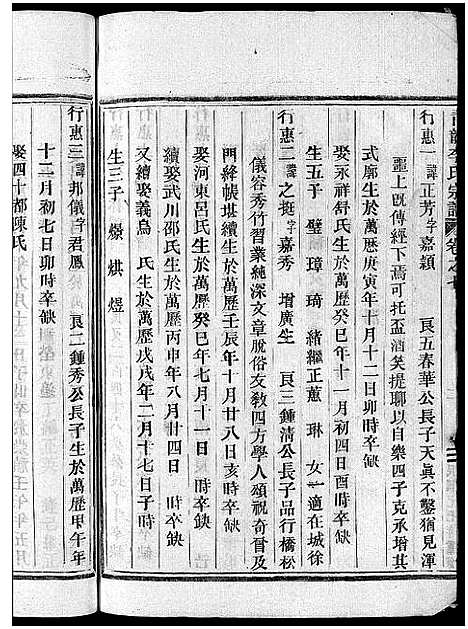 李氏宗譜 卷之七
行惠一 諱正芳字嘉穎 良五春華公長子天眞不鑿猶見渾
噩上旣傳經下焉可托盃酒笑提聊以自樂四子克承增其
式廓生於萬歷庚寅年十月十二日卯時卒缺
娶永祥舒氏生於萬歷癸巳年十一月初四日酉時卒缺
生五子 璧 璋 琦 緒繼正蕙 琳 女一適在城徐
行惠二 諱之挺字嘉秀 增廣生 良三鍾淸公長子品行橋松
儀容秀竹習業純深文章脫俗友敎四方學人頌祝奇晉及
門絳帳堪續生於萬歷壬辰年十月廿八日亥時卒缺
娶河東呂氏生於萬歷癸巳年七月十一日 時卒缺
續娶武川邵氏生於萬歷丙申年八月廿四日 時卒缺
又續娶義烏 氏生於萬歷戊戌年二月十七日子時
生三子 爃 烘 煜
行惠三 諱邦儀字君鳳 良二鍾秀公長子生於萬歷甲午年
十二月初七日卯時卒缺
娶四十都陳氏